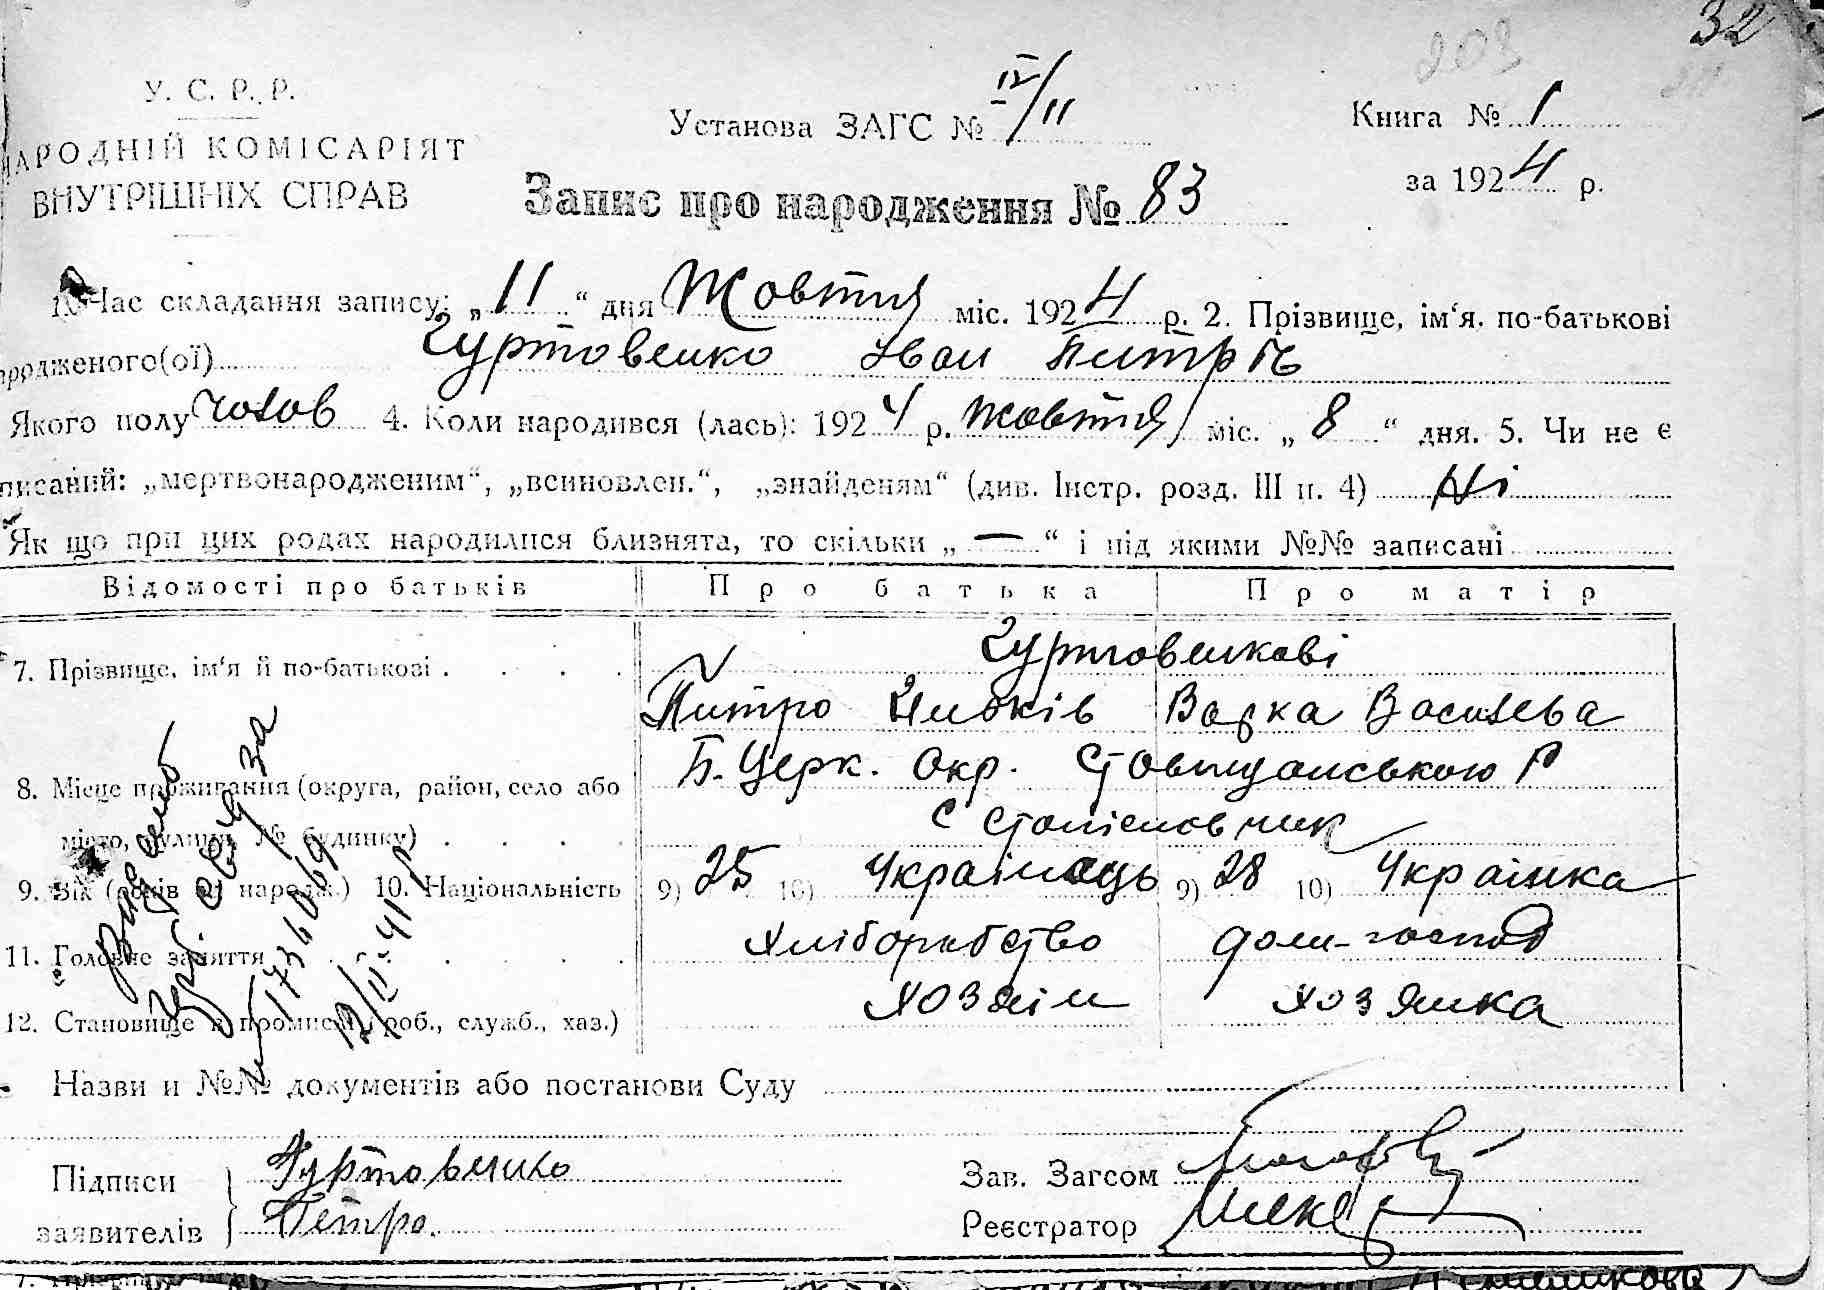 32
203
У. С. Р. Р.
НАРОДНІЙ КОМІСАРІЯТ
ВНУТРІШНІХ СПРАВ
Установа ЗАГС № IV/11
Книга № 1
за 1924 р.
Запис про народження № 83
1. Час складання запису: „11“ дня Жовтня міс. 1924 р. 2. Прізвище, ім‘я. по-батькові
народженого(ої) Гуртовенко Іван Питрів
Якого полу чолов 4. Коли народився (лась): 1924 р. жовтня міс. „8“ дня. 5. Чи не є
писаний: „мертвонародженим“, „всиновлен.“, „знайденям“ (див. Інстр. розд. III п. 4) Ні
Як що при цих родах народилися близнята, то скільки „—“ і під якими №№ записані
Відомості про батьків Про батька Про матір
7. Прізвище, ім‘я й по-батькові . . . . Гуртовенкові
Питро Варка Васильева
8. Місце проживання (округа, район, село або Б-Церк. Окр. Ставищанською Р
місто, вулиця, № будинку) . . . . с
9. Вік (років від народж.) 10. Національність 9) 25 10) Українець 9) 28 10) Українка
11. Головне заняття . . . . . . Хліборобство дом-господ
12. Становище в промислі (роб., служб., хаз.) хозяін хозяйка
Назви и №№ документів або постанови Суду
Підписи Гуртовенко
заявителів Петро.
Зав. Загсом
Реєстратор